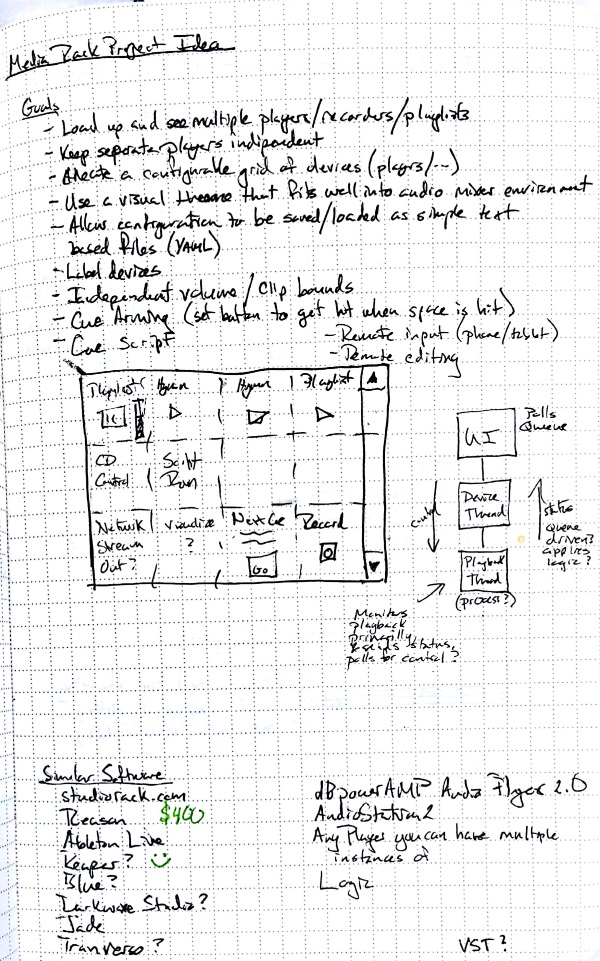 Media Rack Project Idea
Goals
- Load up and see multiple players/recorders/playlists
- Keep seperate players indipendent
- Create a configurable grid of devices (playrs/--)
- Use a visual theme that fits well into audio mixer enviranment
- Allow configuration to be saved/loaded as simple text
based files (YAML)
- Label devices
- Independent volume / Clip bounds
- Cue Arming (set button to get hit when space is hit)
- Cue Script
- Remote input (phone/tablet)
- Remote editing
Playlist
Playlist
CD
Control
Script
Run
Network
Stream
Out?
Visualize
?
Next Cue
Go
Record
UI
Polls
Queue
Device
Thread
Playback
Thread
(process?)
control
status
queue
driven?
applies
logic?
Monitors
playback
primarilly,
& sends status,
polls for control?
Similar Software
studiorack.com
Reason $400
Ableton Live
Reaper?
Blue?
Darkwave Studio?
Jade
Tranverso?
dBpowerAMP Audio Player 2.0
AudioStation2
Any Player you can have multiple
instances of
Logic
VST?